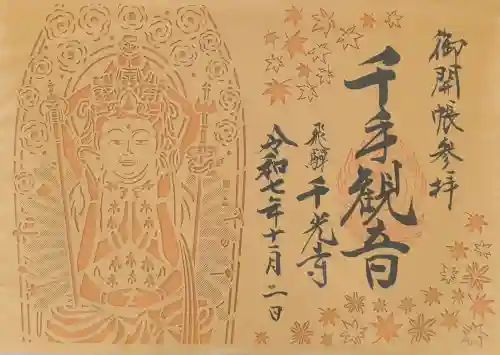 御開帳参拝
千手観音
飛騨 千光寺
令和七年十一月二日